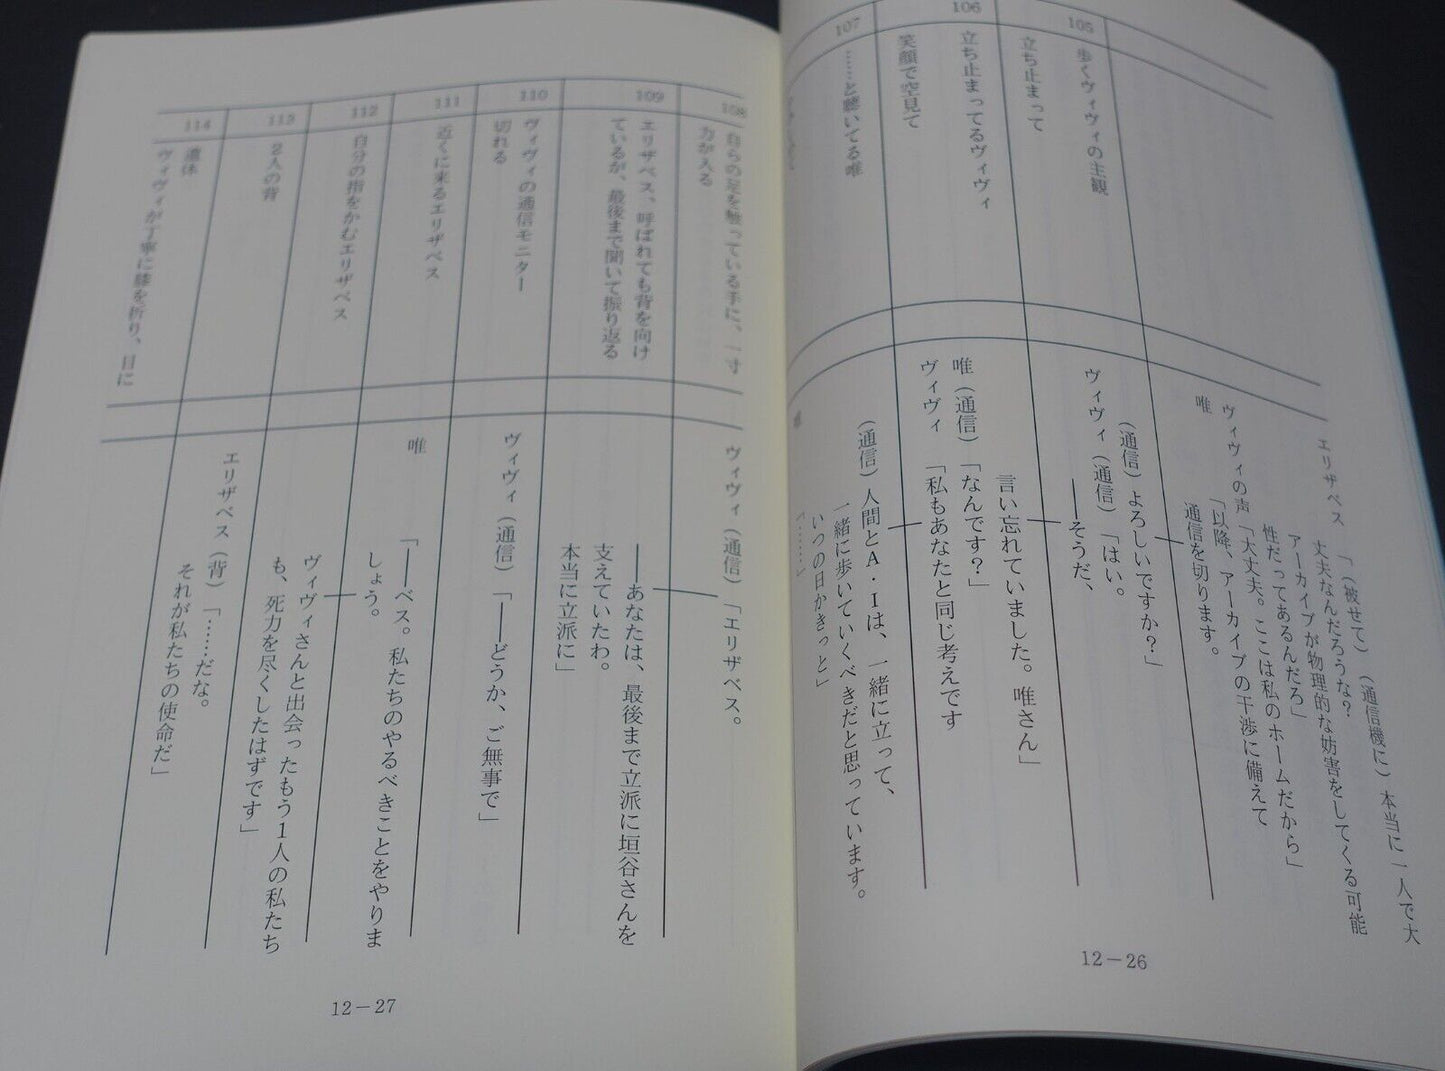 エリザベス 「(被せて)(通信機に)本当に一人で大
丈夫なんだろうな?
アーカイブが物理的な妨害をしてくる可能
性だってあるんだろ」
ヴィヴィの声「大丈夫。ここは私のホームだから」
唯 「以降、アーカイブの干渉に備えて
通信を切ります。
105
歩くヴィヴィの主観
立ち止まって
(通信)よろしいですか?」
ヴィヴィ(通信)「はい。
――そうだ、
106
立ち止まってるヴィヴィ
笑顔で空見て
言い忘れていました。唯さん」
唯(通信)「なんです?」
ヴィヴィ 「私もあなたと同じ考えです
107
……と聴いてる唯
(通信)人間とA・Iは、一緒に立って、
一緒に歩いていくべきだと思っています。
いつの日かきっと」
唯 「……」
12-26
108
自らの足を触っている手に、一寸
力が入る
ヴィヴィ(通信)「エリザベス。
109
エリザベス、呼ばれても背を向け
ているが、最後まで聞いて振り返る
――あなたは、最後まで立派に垣谷さんを
支えていたわ。
本当に立派に」
110
ヴィヴィの通信モニター
切れる
ヴィヴィ(通信)「――どうか、ご無事で」
111
近くに来るエリザベス
唯 「――ベス。私たちのやるべきことをやりま
しょう。
112
自分の指をかむエリザベス
113
2人の背
ヴィヴィさんと出会ったもう1人の私たち
も、死力を尽くしたはずです」
エリザベス(背)「……だな。
それが私たちの使命だ」
114
遺体
ヴィヴィが丁寧に膝を折り、目に
12-27